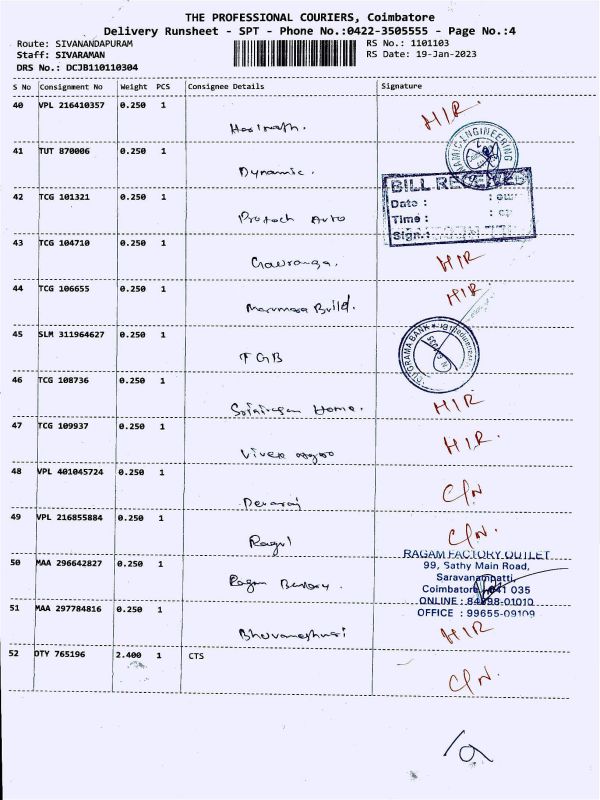 THE PROFESSIONAL COURIERS, Coimbatore
Delivery Runsheet - SPT - Phone No.:0422-3505555 - Page No.:4
Route: SIVANANDAPURAM
RS No.: 1101103
Staff: SIVARAMAN
RS Date: 19-Jan-2023
DRS No.: DCJB110110304
S No Consignment No Weight PCS Consignee Details Signature
40 VPL 216410357 0.250 1
Harinath. HIR.
41 TUT 870006 0.250 1
Dynamic.
ENGINEERING
42 TCG 101321 0.250 1
BILL RECEIVED
Date :
Time :
Sign.:
Protech Auto
43 TCG 104710 0.250 1
Gauranga. HIR
44 TCG 106655 0.250 1
Build. HIR.
45 SLM 311964627 0.250 1
TGB
GRAMA BANK
46 TCG 108736 0.250 1
Home. HIR
47 TCG 109937 0.250 1
Vivek HIR.
48 VPL 401045724 0.250 1
Devaraj C/N
49 VPL 216855884 0.250 1
Ragul C/N.
50 MAA 296642827 0.250 1
Ragam
RAGAM FACTORY OUTLET
99, Sathy Main Road,
Saravanampatti,
Coimbatore 641 035
ONLINE : 84898-01010
OFFICE : 99655-09109
51 MAA 297784816 0.250 1
Bhuvaneshwari HIR
52 DTY 765196 2.400 1 CTS
C/N.